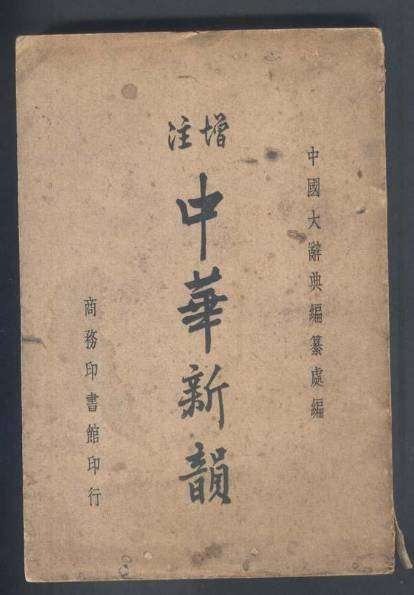 中國大辭典編纂處編
增注
中華新韻
商務印書館印行